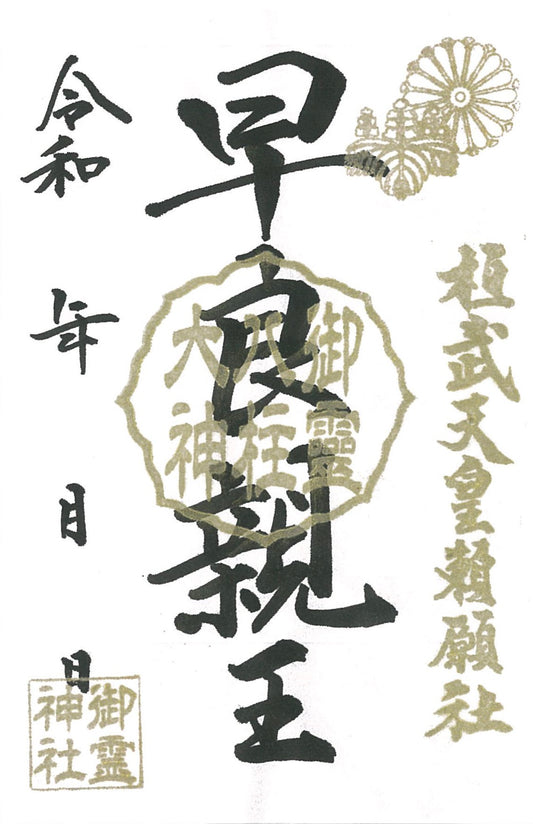 桓武天皇頼願社
早良親王
御靈
八柱
大神
令和　年　月　日
御霊
神社